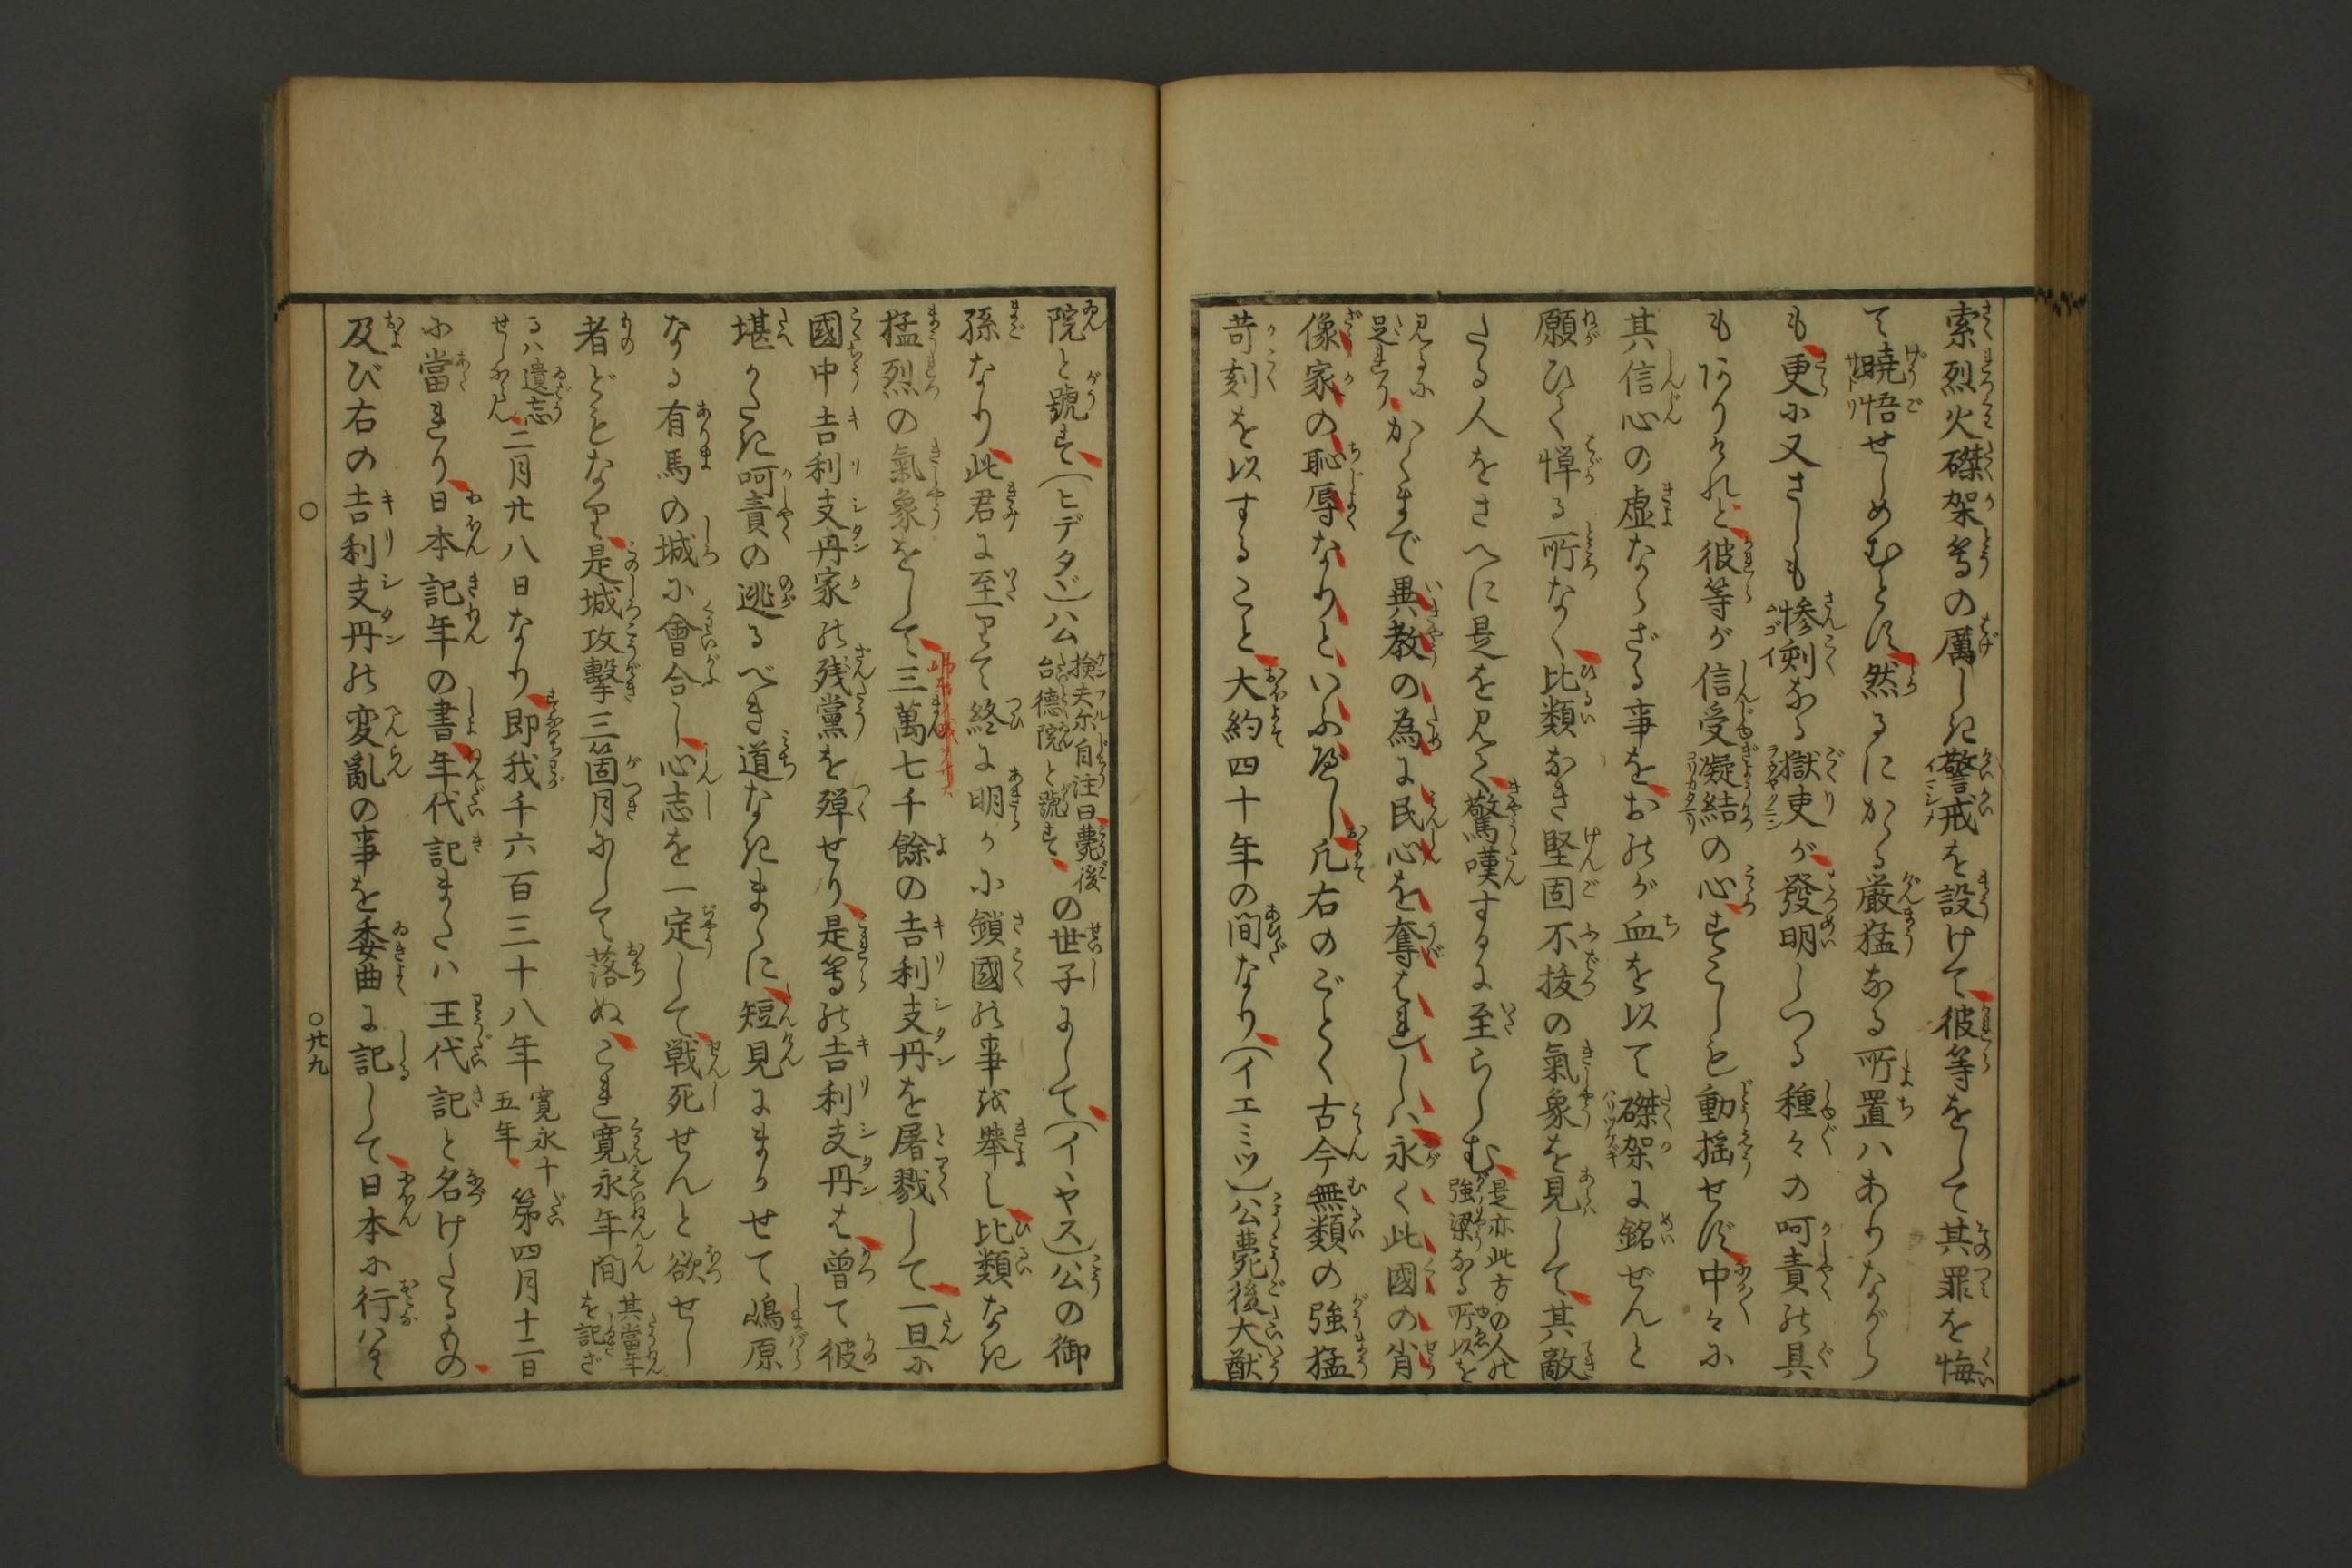 索烈火磔架等の厲しき警戒を設けて彼等をして其罪を悔
て曉悟せしめむとす然るにかゝる厳猛なる所置ハありながら
も更に又さしも惨刻なる獄吏が發明しつる種々の呵責の具
もありけれと彼等が信受凝結の心すこしも動揺せず中々に
其信心の虚ならざる事をおのが血を以て磔架に銘ぜんと
願ひて憚る所なく比類なき堅固不抜の氣象を見して其敵
たる人をさへに是を見て驚嘆するに至らしむ是亦此方の人の強梁なる所以を
見るに足れりかくまで異教の為に民心を奪はれしハ永く此國の肖
像家の恥辱なりといふべし凡右のごとく古今無類の強猛
苛刻を以すること大約四十年の間なり(イエミツ)公薨後大猷
院と號す(ヒデタダ)公檢夫尓自注曰薨後台德院と號すの世子にして(イヽヤス)公の御
孫なり此君に至りて終に明らかに鎖國の事を擧し比類なき
猛烈の氣象をして三萬七千餘の吉利支丹を屠戮して一旦に
國中吉利支丹家の残黨を殫せり是等の吉利支丹は曾て彼
堪かたき呵責の逃るべき道なきまゝに短見にまかせて嶋原
なる有馬の城に會合し心志を一定して戦死せんと欲せし
者どもなり是城攻擊三箇月にして落ぬこれ寛永年間其當年を記ざ
るハ遺忘せしならん二月廿八日なり即我千六百三十八年寛永十五年第四月十二日
に當れり日本記年の書年代記またハ王代記と名けたるもの
及び右の吉利支丹の変亂の事を委曲に記して日本に行ハる
〇 〇廿九